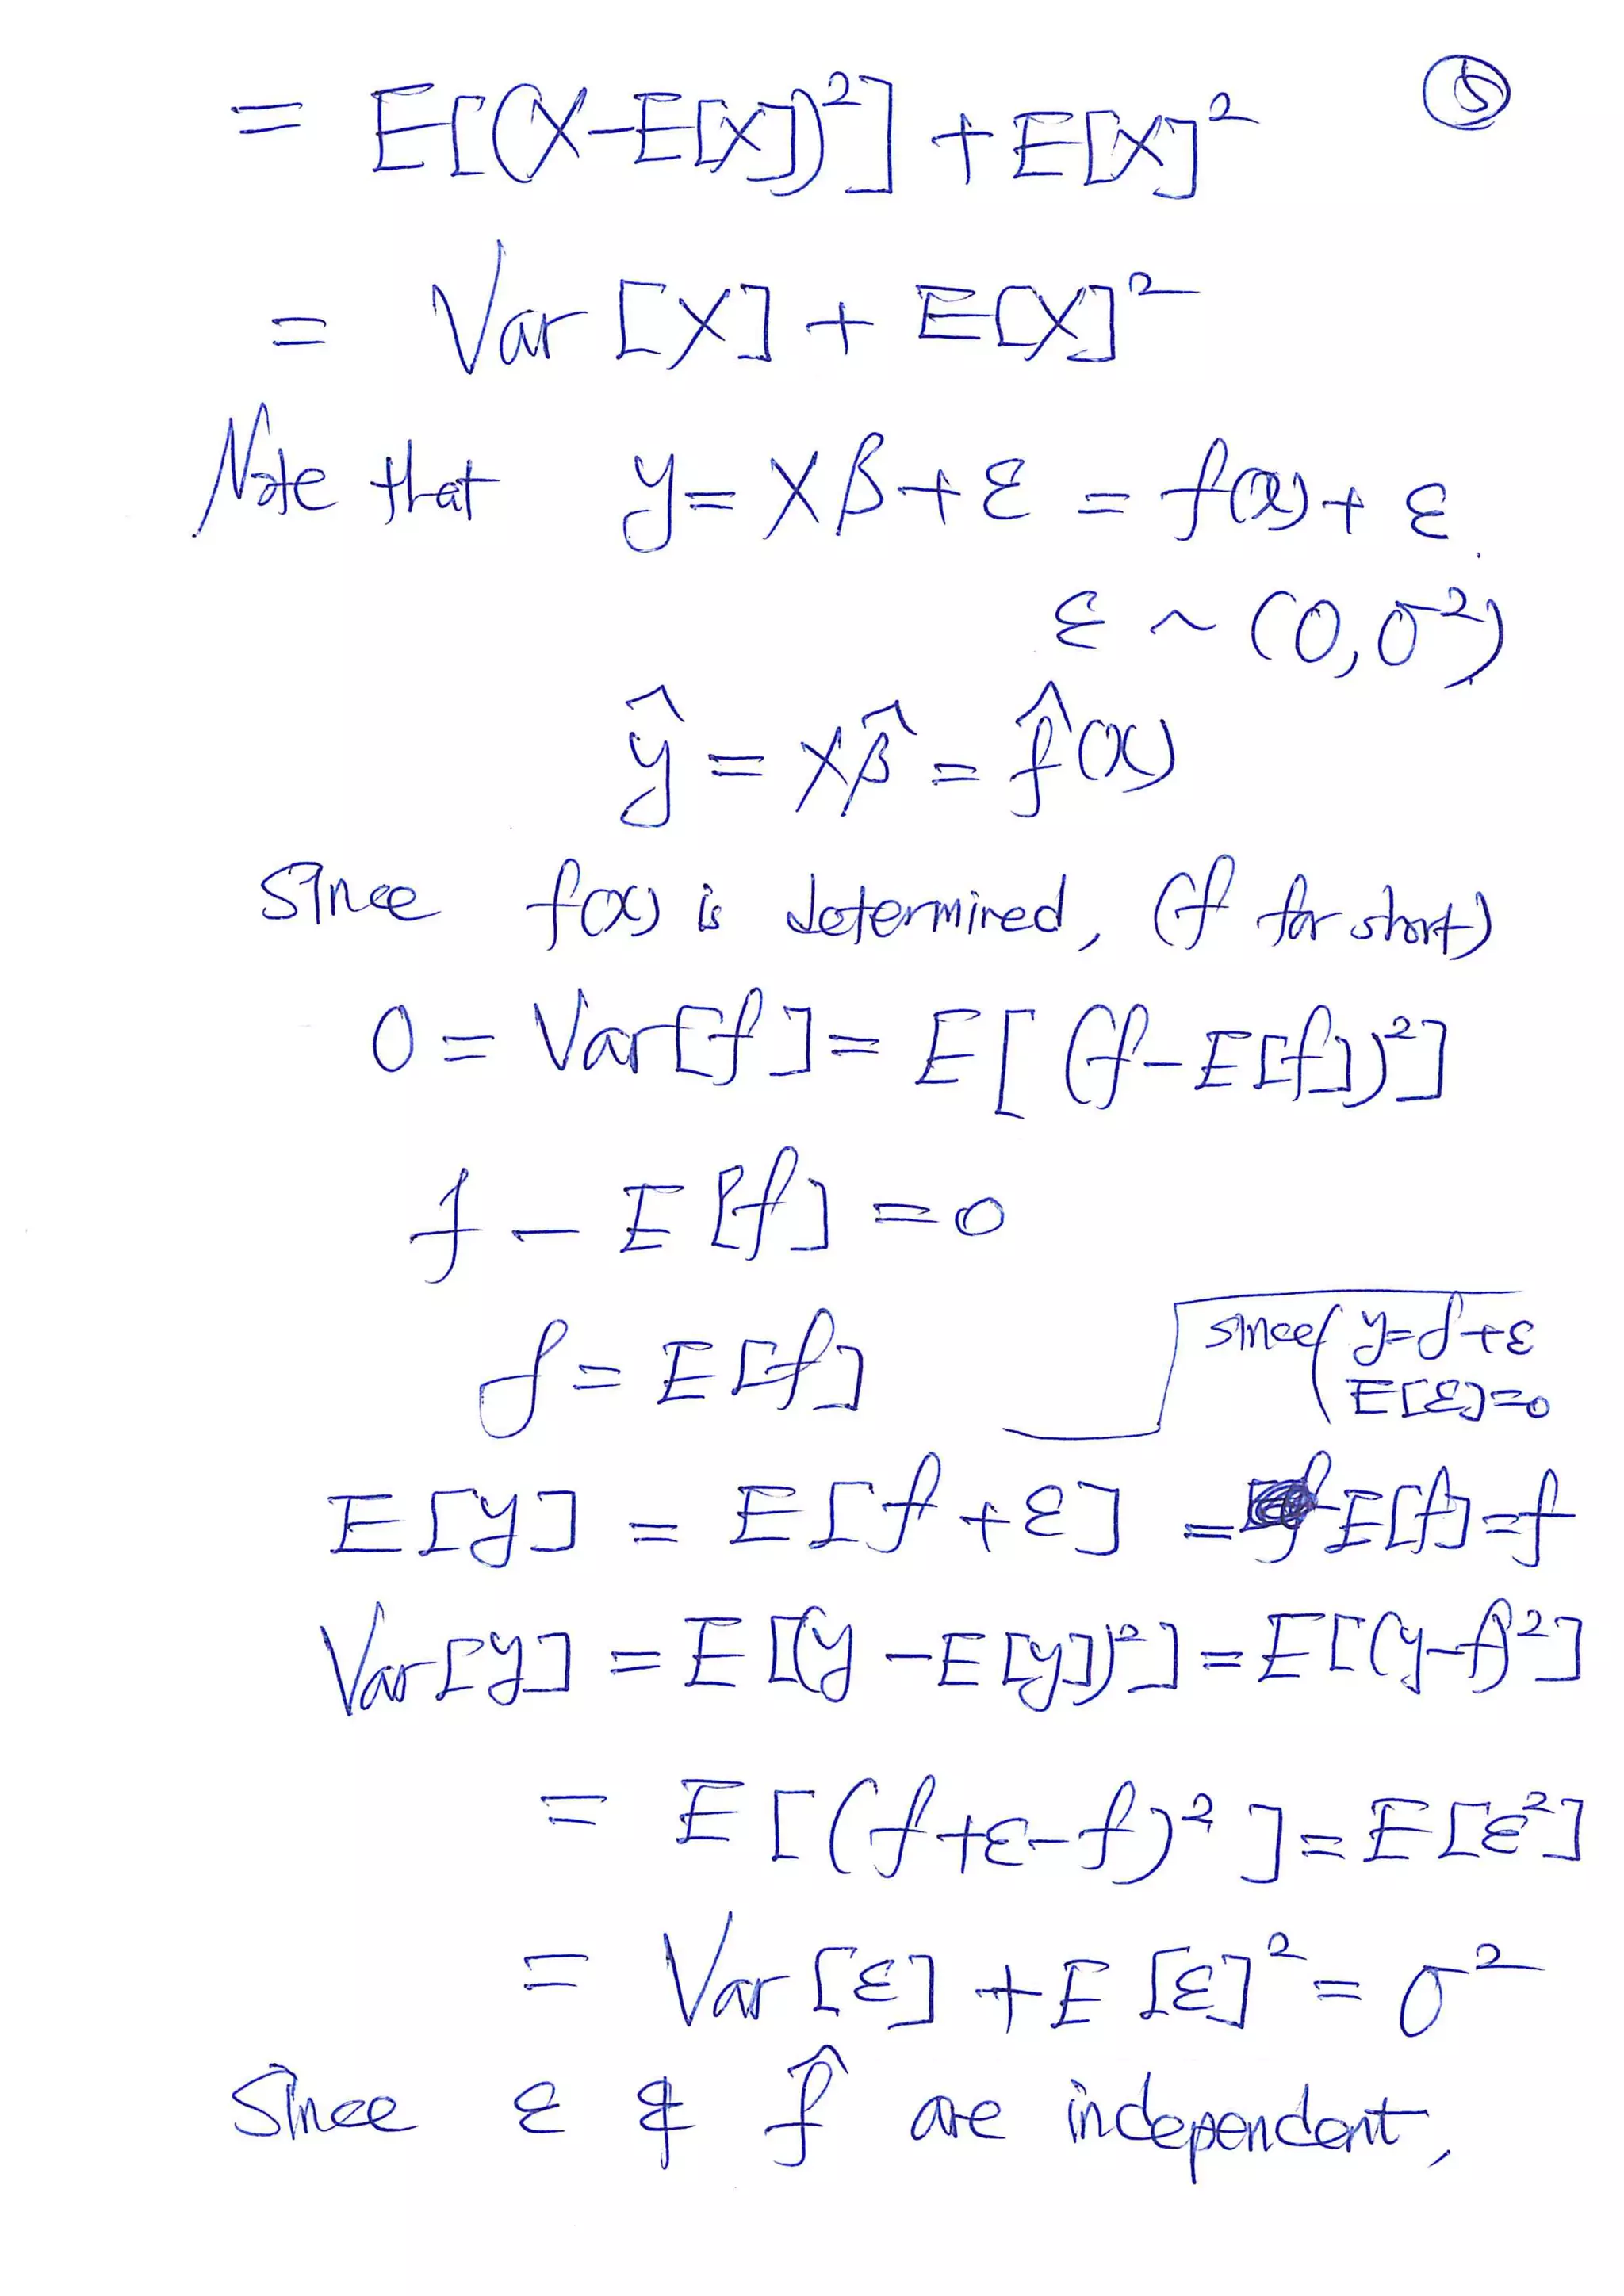 ⑤
= E[(X-E[X])²] + E[X]²
= Var[X] + E[X]²
Note that y = Xβ + ε = f(x) + ε.
ε ~ (0, σ²)
ŷ = Xβ̂ = f̂(x)
Since f(x) is determined, (f for short)
0 = Var[f] = E[(f-E[f])²]
f - E[f] = 0
f = E[f]
since ( y=f+ε
E[ε]=0
E[y] = E[f+ε] = E[f] = f
Var[y] = E[(y-E[y])²] = E[(y-f)²]
= E[(f+ε-f)²] = E[ε²]
= Var[ε] + E[ε]² = σ²
Since ε & f̂ are independent,